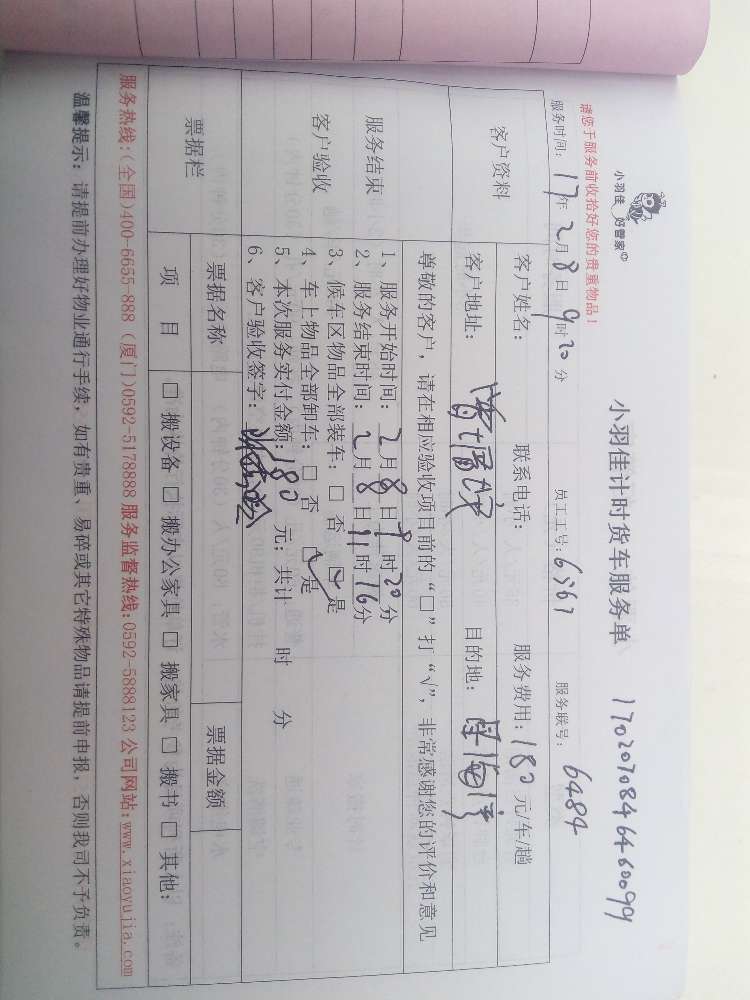 小羽佳 好管家
小羽佳计时货车服务单
请您于服务前收拾好您的贵重物品！
服务时间：17年2月8日9时20分 员工工号：6567 服务账号：6484
客户资料
客户姓名： 联系电话： 服务费用：180元/车/趟
客户地址： 目的地：
尊敬的客户，请在相应验收项目前的“□”打“√”，非常感谢您的评价和意见
服务结束
客户验收
1、服务开始时间：2月8日9时20分
2、服务结束时间：2月8日11时16分
3、候车区物品全部装车：□否 ☑是
4、车上物品全部卸车：□否 ☑是
5、本次服务实付金额：180元；共计 时 分
6、客户验收签字：
票据栏
票据名称 票据金额
项 目 □搬设备 □搬办公家具 □搬家具 □搬书 □其他：
服务热线:(全国)400-6655-888 (厦门)0592-5178888 服务监督热线:0592-5888123 公司网站:www.xiaoyujia.com
温馨提示：请提前办理好物业通行手续，如有贵重、易碎或其它特殊物品请提前申报，否则我司不予负责。